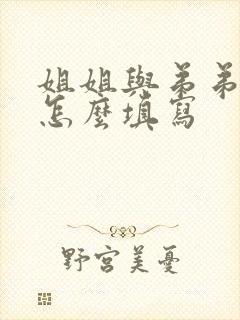 姐姐與弟弟
怎麼填寫
野宮美憂